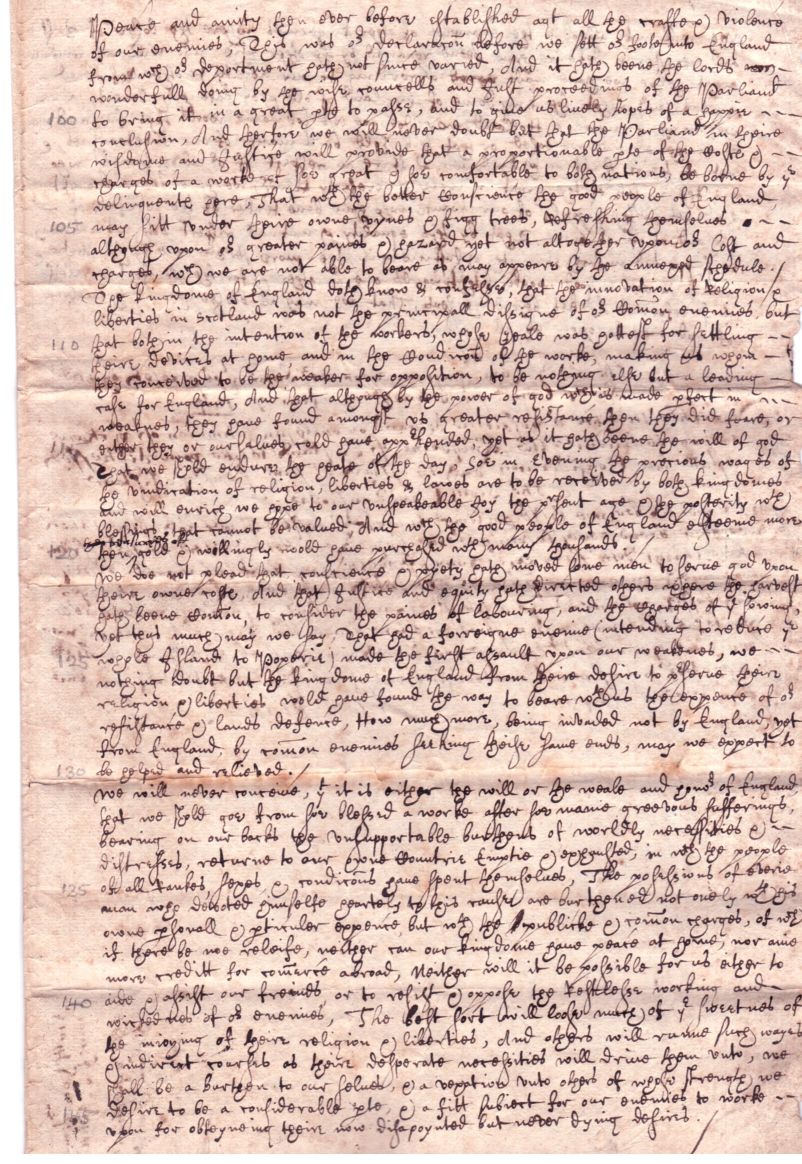 Peace and amity then ever before established agt all the crafte & violence
of our enemies, This was or declaracon before we sett or foote into England
from wch or deportment hath not since varied, And it hath beene the lords
wonderfull doing by the wise councells and just proceedings of the Parliamt
100 to bring it in a great pte to passe, and to give us lively hopes of a happie
conclusion, And therfore we will never doubt but that the Parliamt in theire
wisdome and Justice will provide that a proportionable pte of the Coste &
charges of a worke soe great & soe comfortable to both nations, be borne by ye
delinquents here, That wth the better Conscience the good people of England
105 may sitt under theire owne vynes & figg trees, Refreshing themselves
although upon or greater paines & hazard yet not altogether upon or Cost and
charges, wch we are not able to beare as may appeare by the annexed schedule /
The kingdome of England doth know & confesse, that the innovation of Religion &
liberties in scotland was not the principall dissigne of or Comon enemies, but
110 that both in the intention of the workers, whose zeale was hottest for settling
theire devices at home and in the Condicon of the worke, making us whom
they conceived to be the weaker for opposition, to be nothing else but a leading
case for England, And that although by the power of god wch is made pfect in
weaknes, they have found amongst us greater resistance then they did feare, or
115 either they or ourselves cold have apprhended, yet as it hath beene the will of god
that we shold endure the heate of the day, soe in Evening the precious wages of
the vindication of religion, liberties & lawes are to be received by both kingdomes
and will enrich we hope to our unspeakeable Joy the prsent age & the posterity wth
blessings that cannot be valued, And wch the good people of England esteeme more
120 then gold & willingly wold have purchased wth many thousands /
We doe not plead that conscience & piety hath moved some men to serve god upon
theire owne coste, And that Justice and equity hath directed others where the harvest
hath beene Comon, to consider the paines of labouring, and the Charges of ye sowing,
yet thus much may we say, That had a forreigne enemie (intending to reduce ye
125 whole Island to Poperie) made the first assault upon our weaknes, we
nothing doubt but the kingdome of England from theire desire to prserve theire
religion & liberties wold have found the way to beare wth us the expence of or
resistance & lands defence, How much more, being invaded not by England, yet
from England, by comon enemies seeking theise same ends, may we expect to
130 be helped and relieved.
We will never conceive, yt it is either the will or the weale and honor of England,
that we shold goe from soe blessed a worke after soe manie greevous sufferings,
bearing on our backs the unsupportable burthens of worldly necessities &
distresses, returne to our owne Countrie Emptie & exhausted, in wch the people
135 of all rankes, sexes, & condicons have spent themselves, The possessions of Everie
man who devoted himselfe heartely to this cause are burthened not onely wth his
owne psonall & pticuler expence, but wth the publicke & common charges, of wch
if there be noe releife, neither can our kingdome have peace at home, nor anie
more creditt for comerce abroad, Neither will it be possible for us either to
140 aide & assist our freinds, or to resist & oppose the Restlesse working and
wickednes of or enemies, The best sort will loose much of ye sweetnes of
the injoying of theire religion & liberties, And others will runne such wayes
& indirect courses as theire desperate necessities will drive them unto, we
shall be a burthen to our selves, & a vexation unto others of whose strength we
145 desire to be a considerable pte, & a fitt subject for our enemies to worke
upon for obteyneing theire now disapoynted but never dying desires.